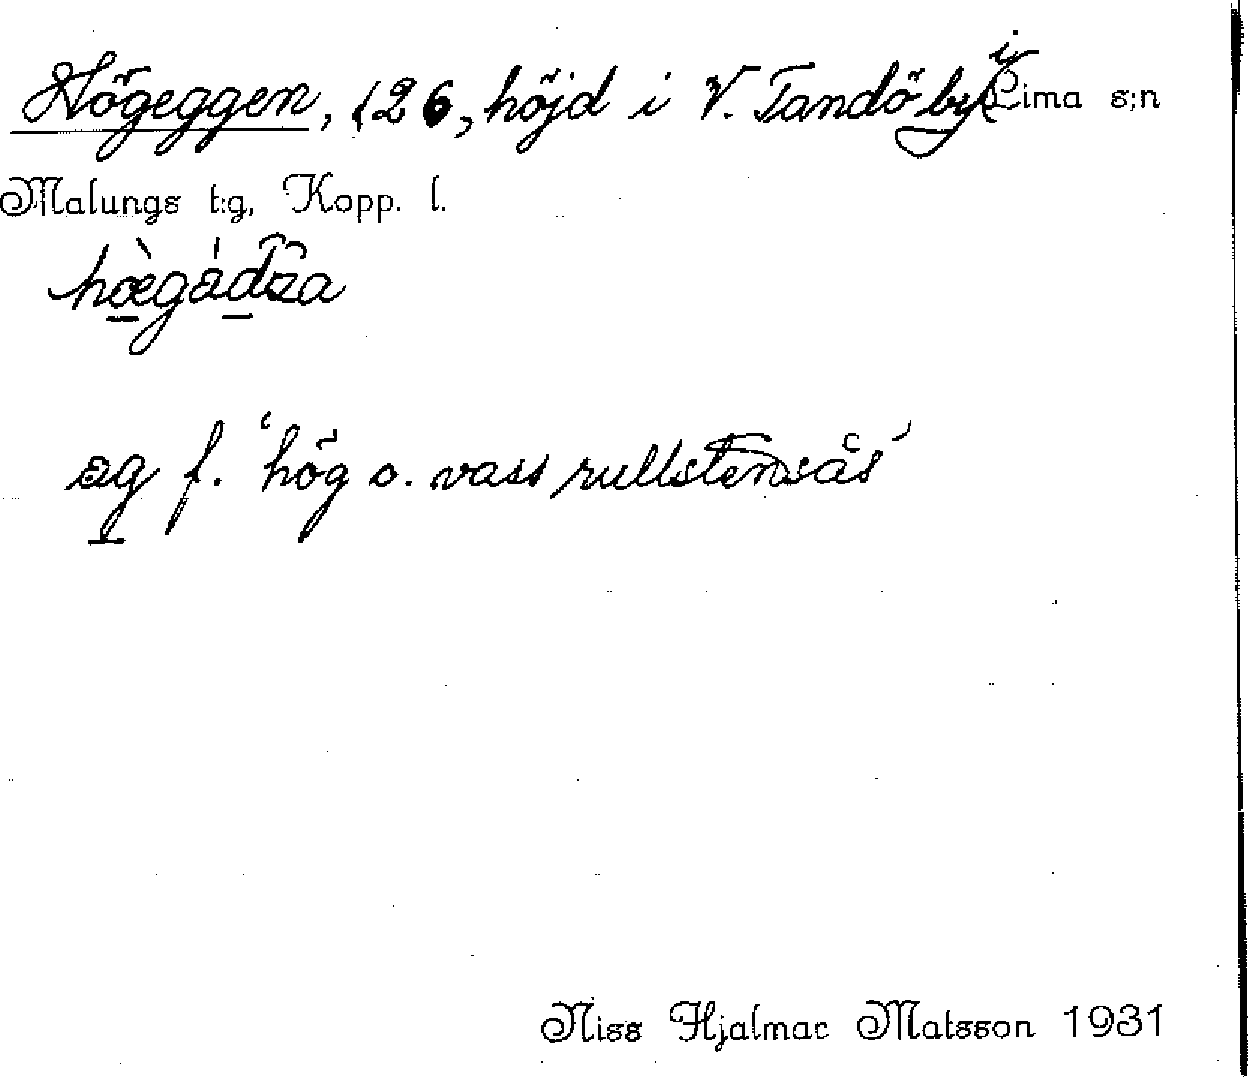 Högeggen, 126, höjd i V. Tandö by i Lima s:n
Malungs t:g, Kopp. l.
ag f. 'hög o. vass rullstensås'
Niss Hjalmar Matsson 1931